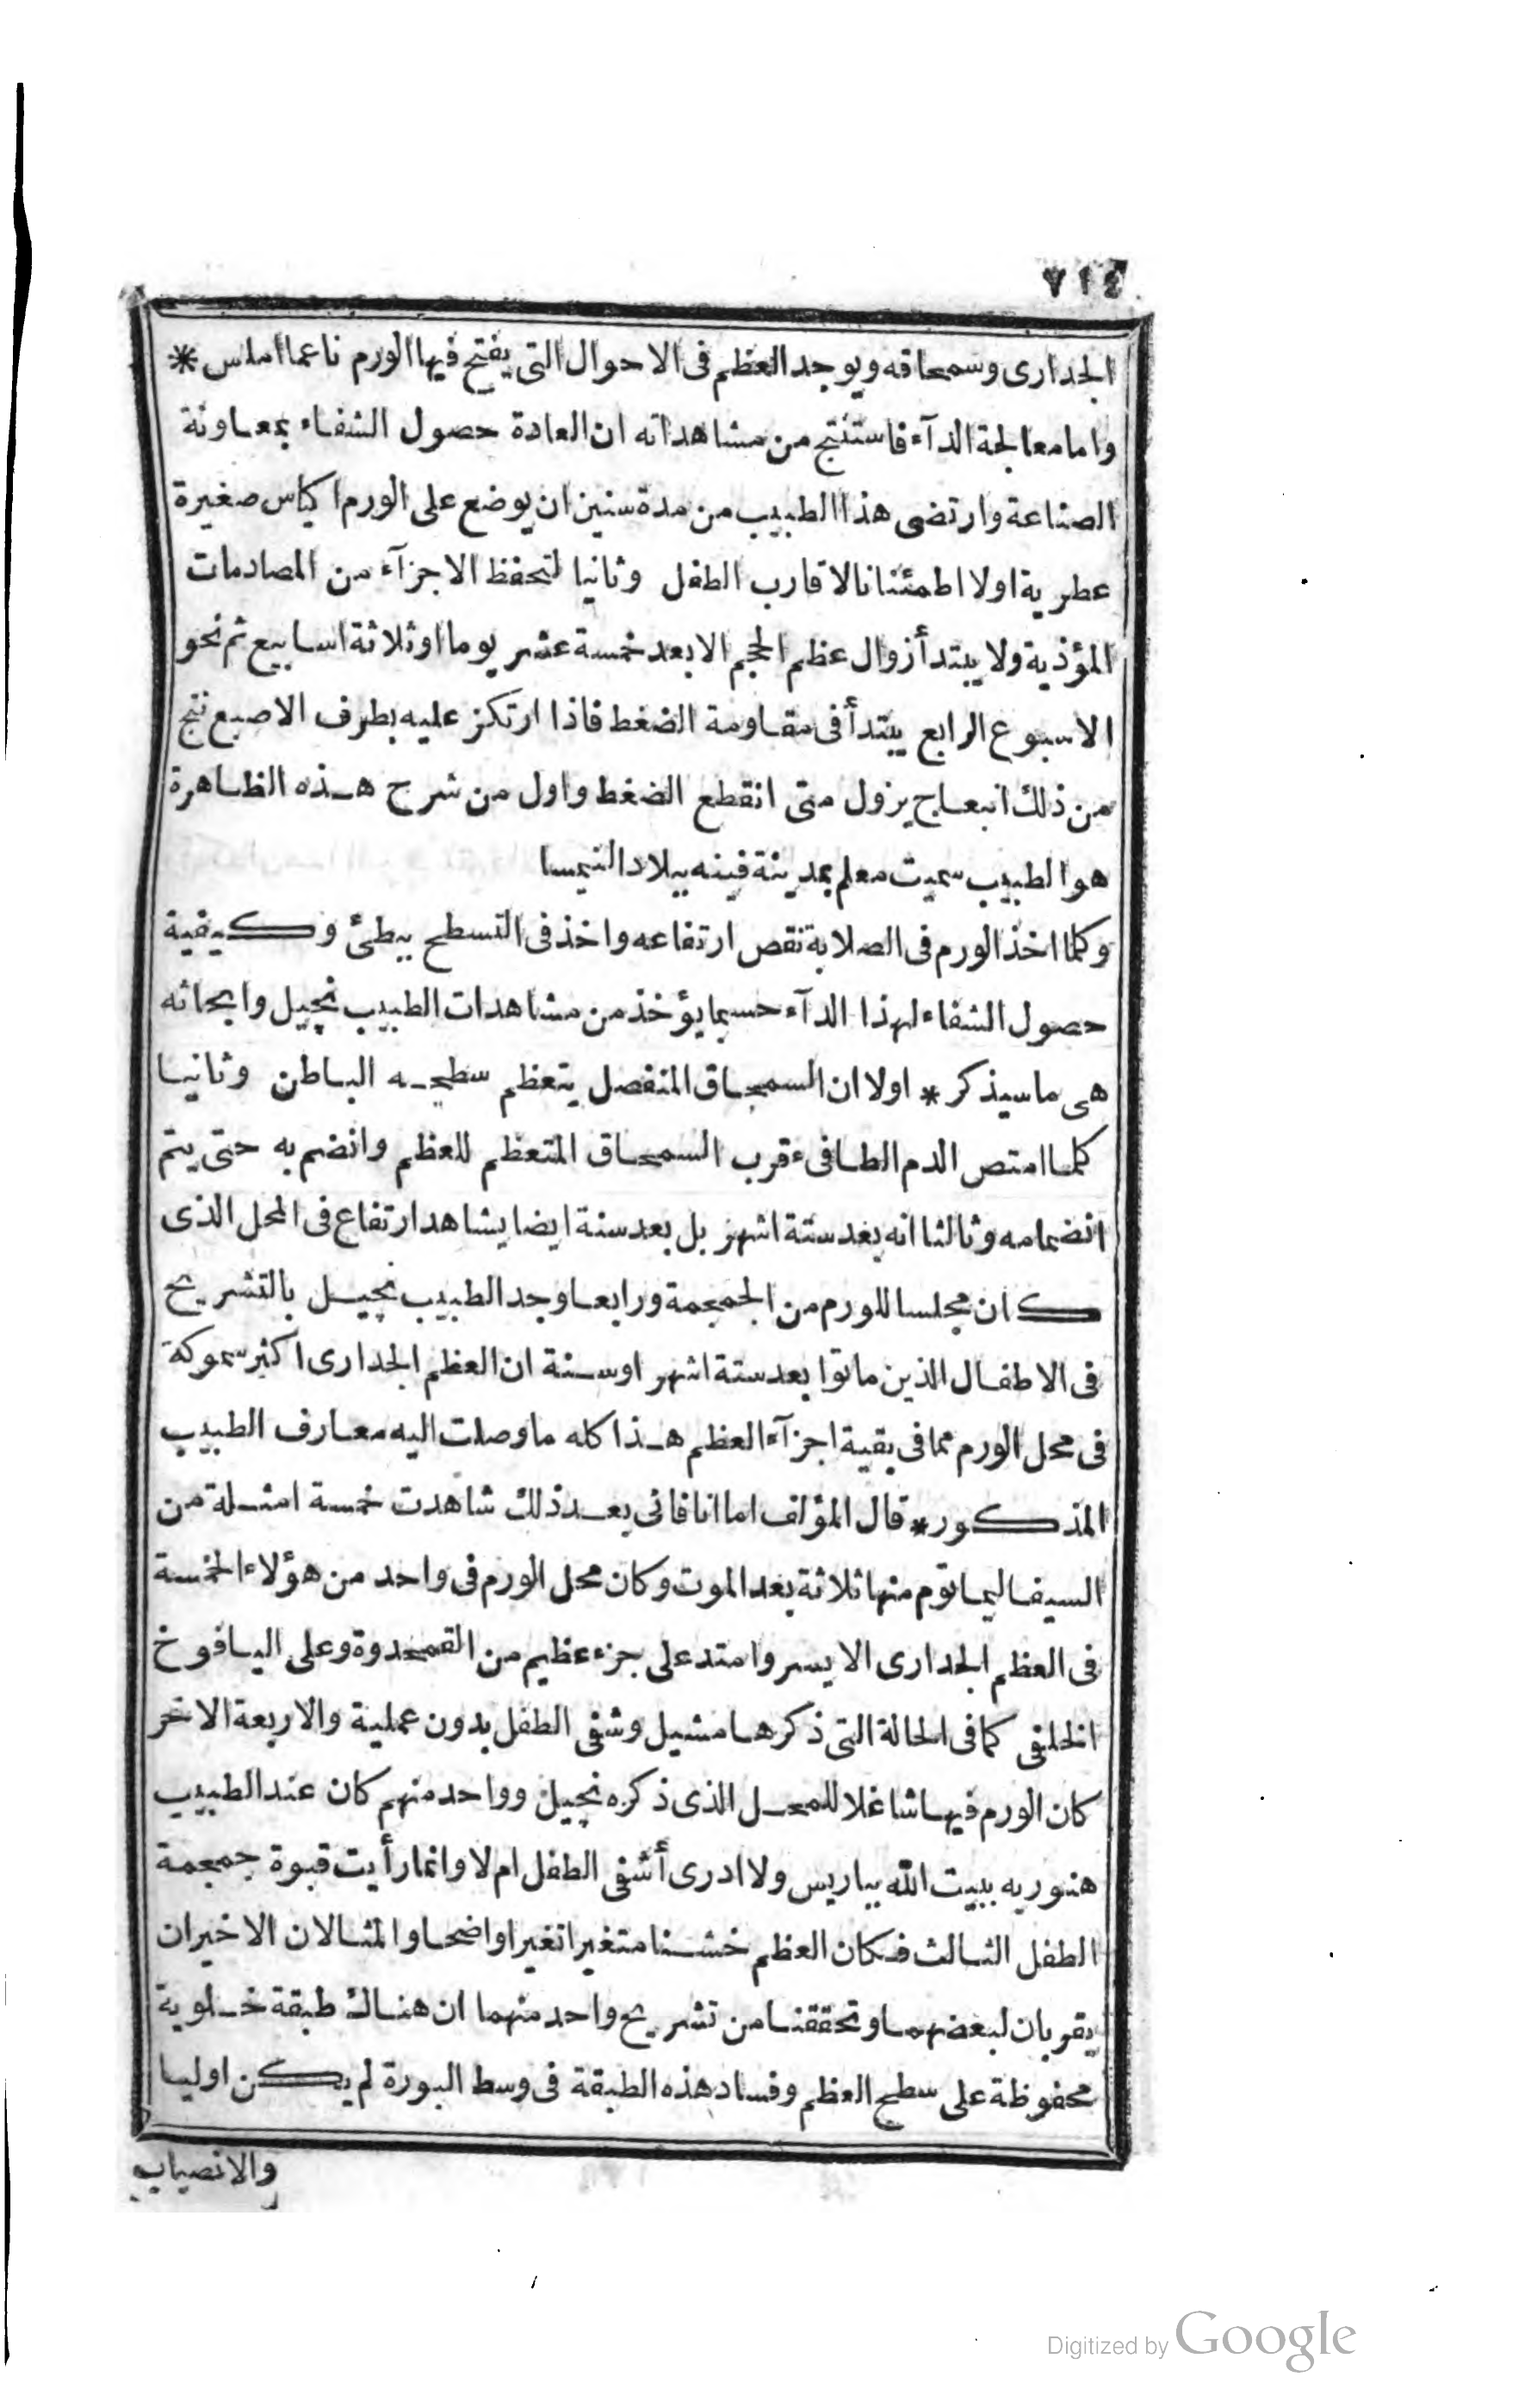 ٧١٤
الجدارى وسمحاقه ويوجد العظم فى الاحوال التى يفتح فيها الورم ناعما املس *
واما معالجة الدآء فاستنتج من مشاهداته ان العادة حصول الشفاء بمعاونة
الصناعة وارتضى هذا الطبيب من مدة سنين ان يوضع على الورم اكياس صغيرة
عطرية اولا اطمئنانا لاقارب الطفل وثانيا لتحفظ الاجزآء من المصادمات
المؤذية ولا يبتدأ زوال عظم الحجم الا بعد خمسة عشر يوما او ثلاثة اسابيع ثم نحو
الاسبوع الرابع يبتدأ فى مقاومة الضغط فاذا ارتكز عليه بطرف الاصبع نتج
من ذلك انبعاج يزول متى انقطع الضغط واول من شرح هذه الظاهرة
هو الطبيب سميت معلم بمدينة فينه ببلاد النيمسا
وكلما اخذ الورم فى الصلابة نقص ارتفاعه واخذ فى التسطح ببطئ وكيفية
حصول الشفاء لهذا الدآء حسبما يؤخذ من مشاهدات الطبيب نجيل وابحاثه
هى ما سيذكر * اولا ان السمحاق المنفصل يتعظم سطحه الباطن وثانيا
كلما امتص الدم الطافىء قرب السمحاق المتعظم للعظم وانضم به حتى يتم
انضمامه وثالثا انه بعد ستة اشهر بل بعد سنة ايضا يشاهد ارتفاع فى المحل الذى
كان مجلسا للورم من الجمجمة ورابعا وجد الطبيب نجيل بالتشريح
فى الاطفال الذين ماتوا بعد ستة اشهر او سنة ان العظم الجدارى اكثر سموكة
فى محل الورم مما فى بقية اجزآء العظم هذا كله ما وصلت اليه معارف الطبيب
المذكور * قال المؤلف اما انا فانى بعد ذلك شاهدت خمسة امثلة من
السيفاليماتوم منها ثلاثة بعد الموت وكان محل الورم فى واحد من هؤلاء الخمسة
فى العظم الجدارى الايسر وامتد على جزء عظيم من القمحدوة وعلى اليافوخ
الخلفى كما فى الحالة التى ذكرها مشيل وشفى الطفل بدون عملية والاربعة الاخر
كان الورم فيها شاغلا للمحل الذى ذكره نجيل وواحد منهم كان عند الطبيب
هنوريه ببيت الله بباريس ولا ادرى أشفى الطفل ام لا وانما رأيت قبوة جمجمة
الطفل الثالث فكان العظم خشنا متغيرا تغيرا واضحا والمثالان الاخيران
يقربان لبعضهما وتحققنا من تشريح واحد منهما ان هناك طبقة خلوية
محفوظة على سطح العظم وفساد هذه الطبقة فى وسط البورة لم يكن اوليا
والانصباب
Digitized by Google